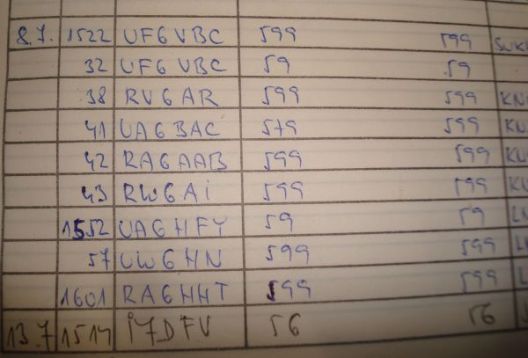 8.7. 1522 UF6VBC 599 599
32 UF6VBC 59 59
38 RV6AR 599 599 KN
41 UA6BAC 579 599
42 RA6AAB 599 599
43 RW6Ai 599 599
1552 UA6HFY 59 59
57 UW6HN 599 599
1601 RA6HHT 599 599
13.7 1514 i7DFV 56 56